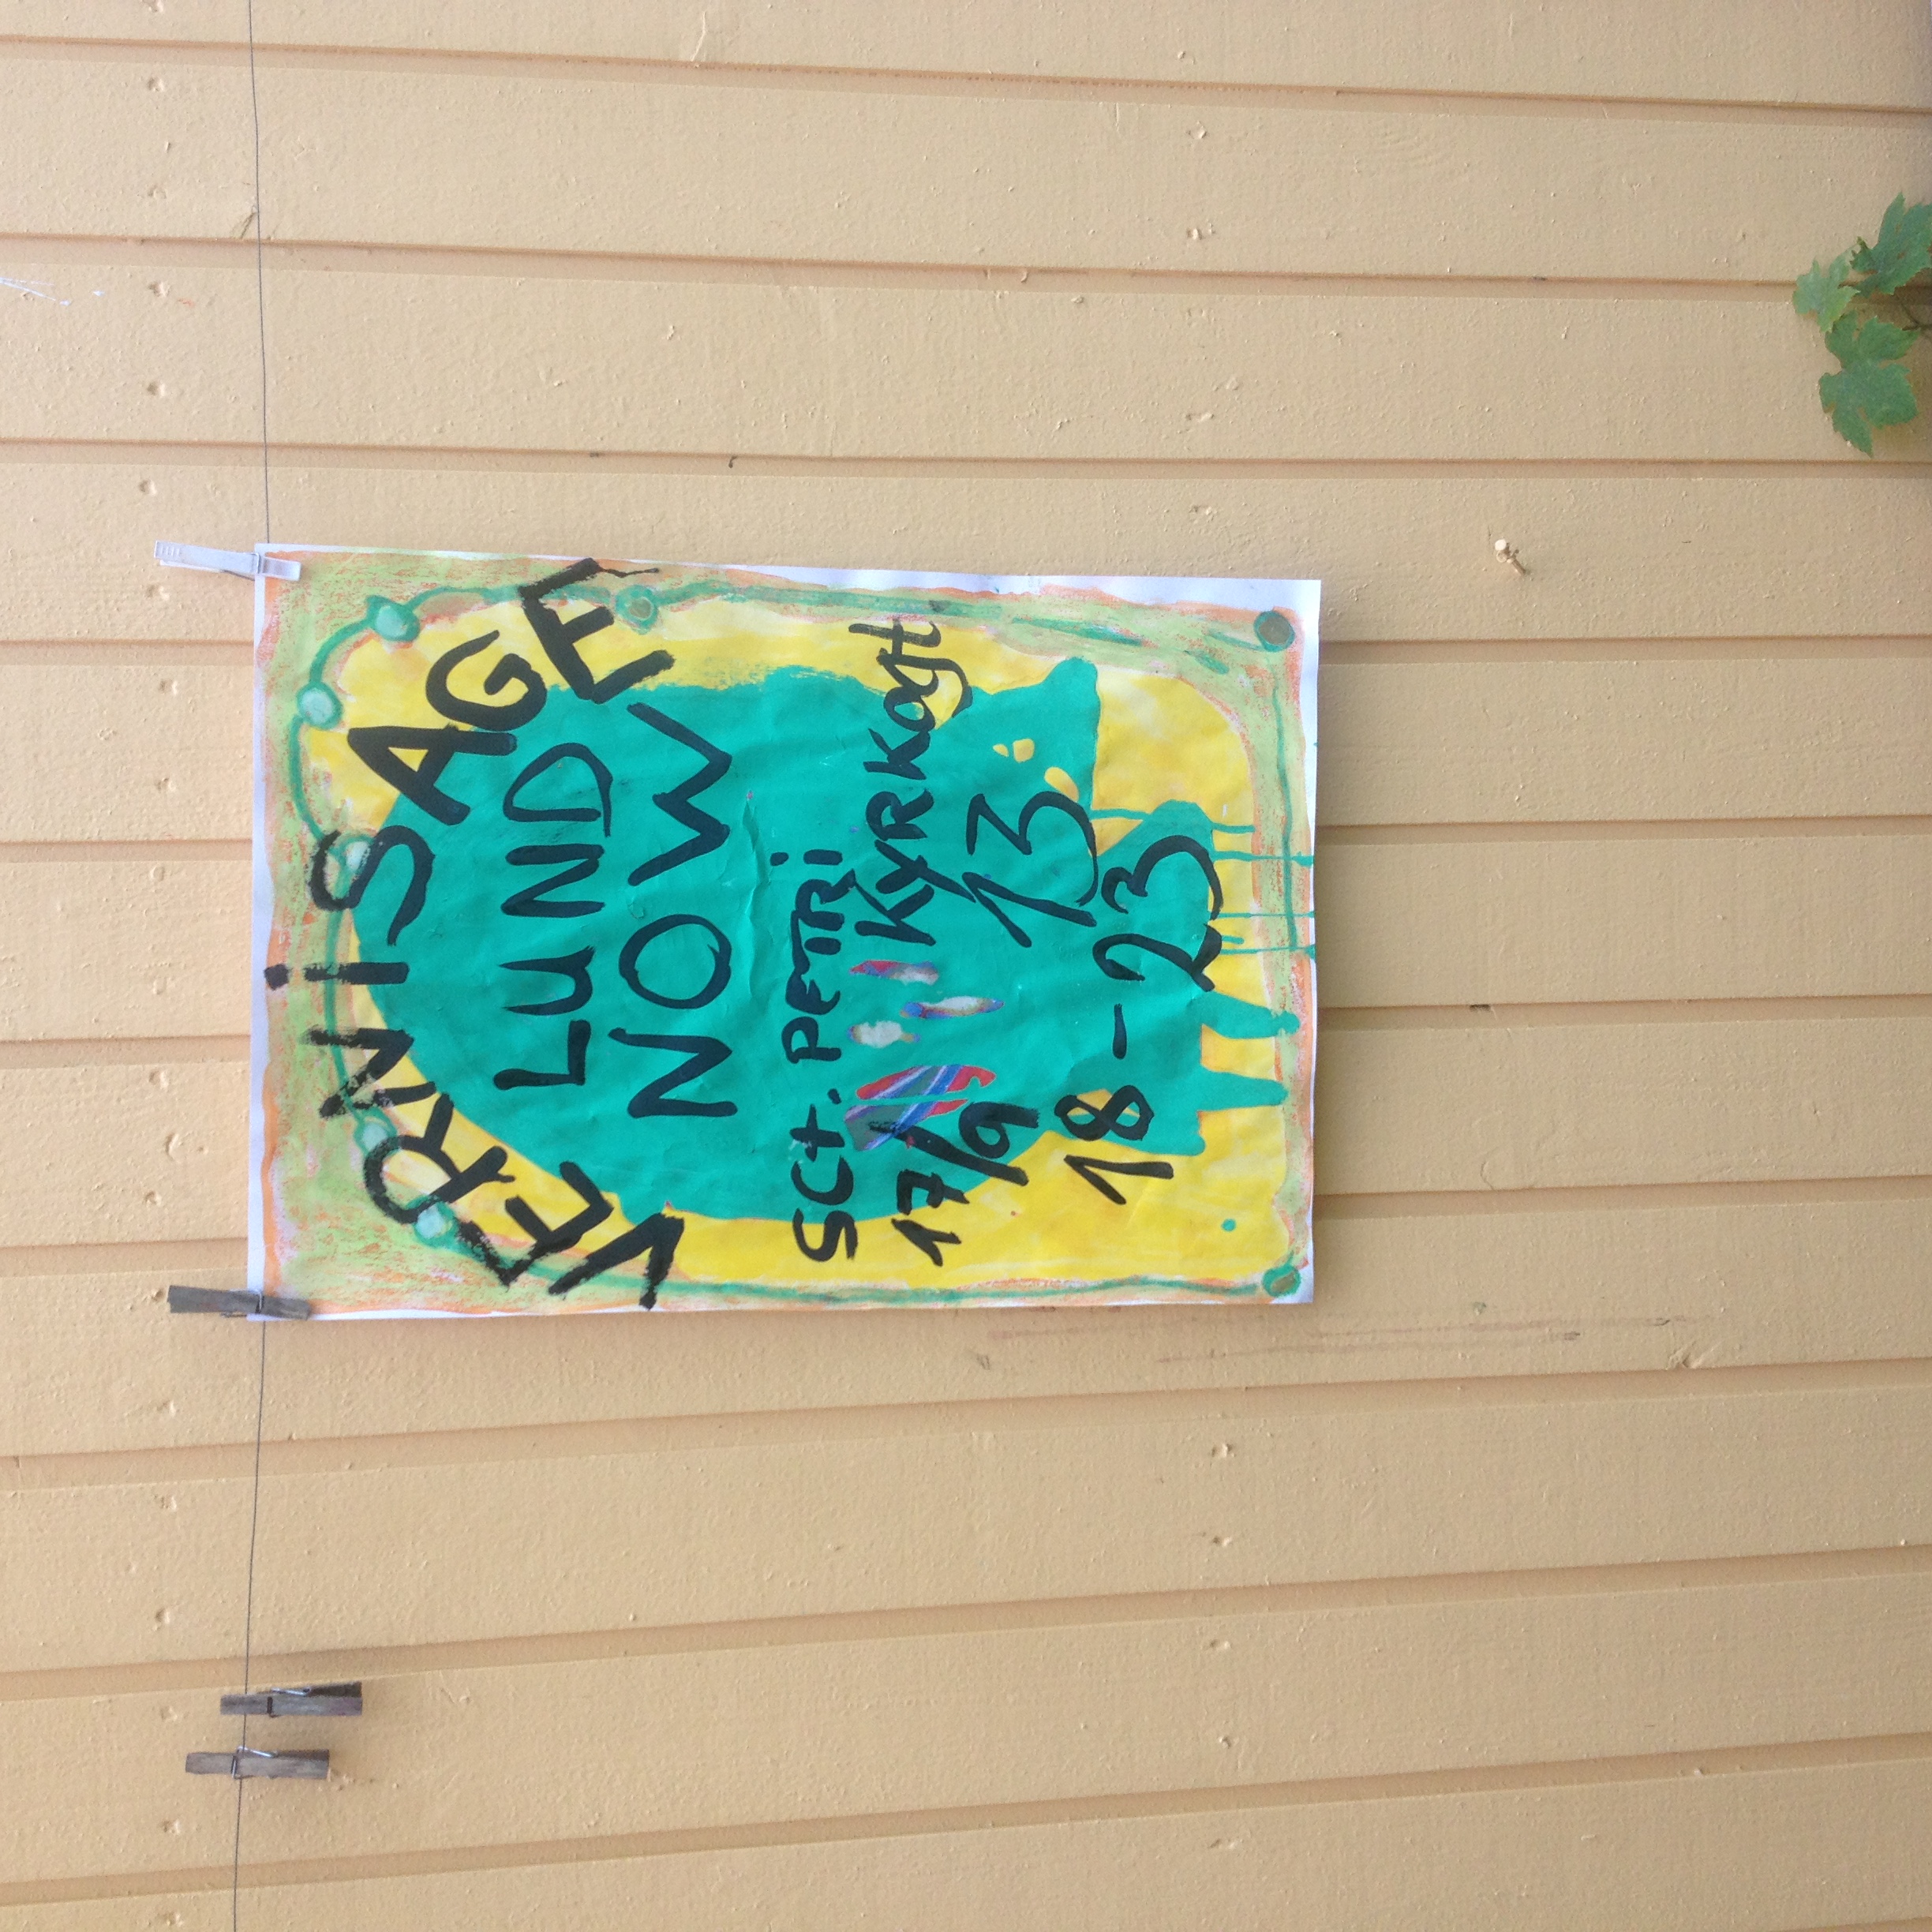 VERNiSAGE
LUND
NOW
SCt. PETRi
KYRKOGT.
17/9 13
18-23